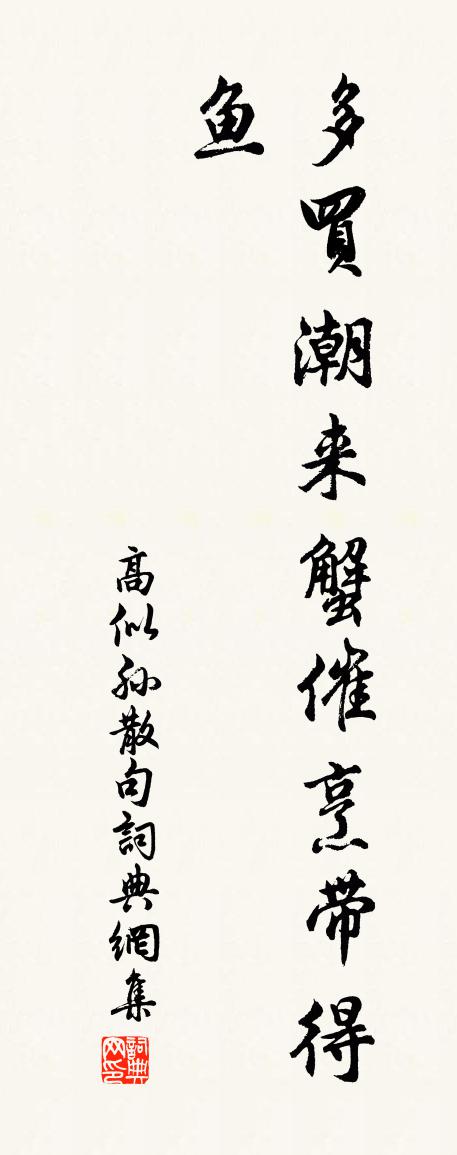 多買潮来蟹催烹带得
鱼
高似孙散句詞典網集
詞典
网印